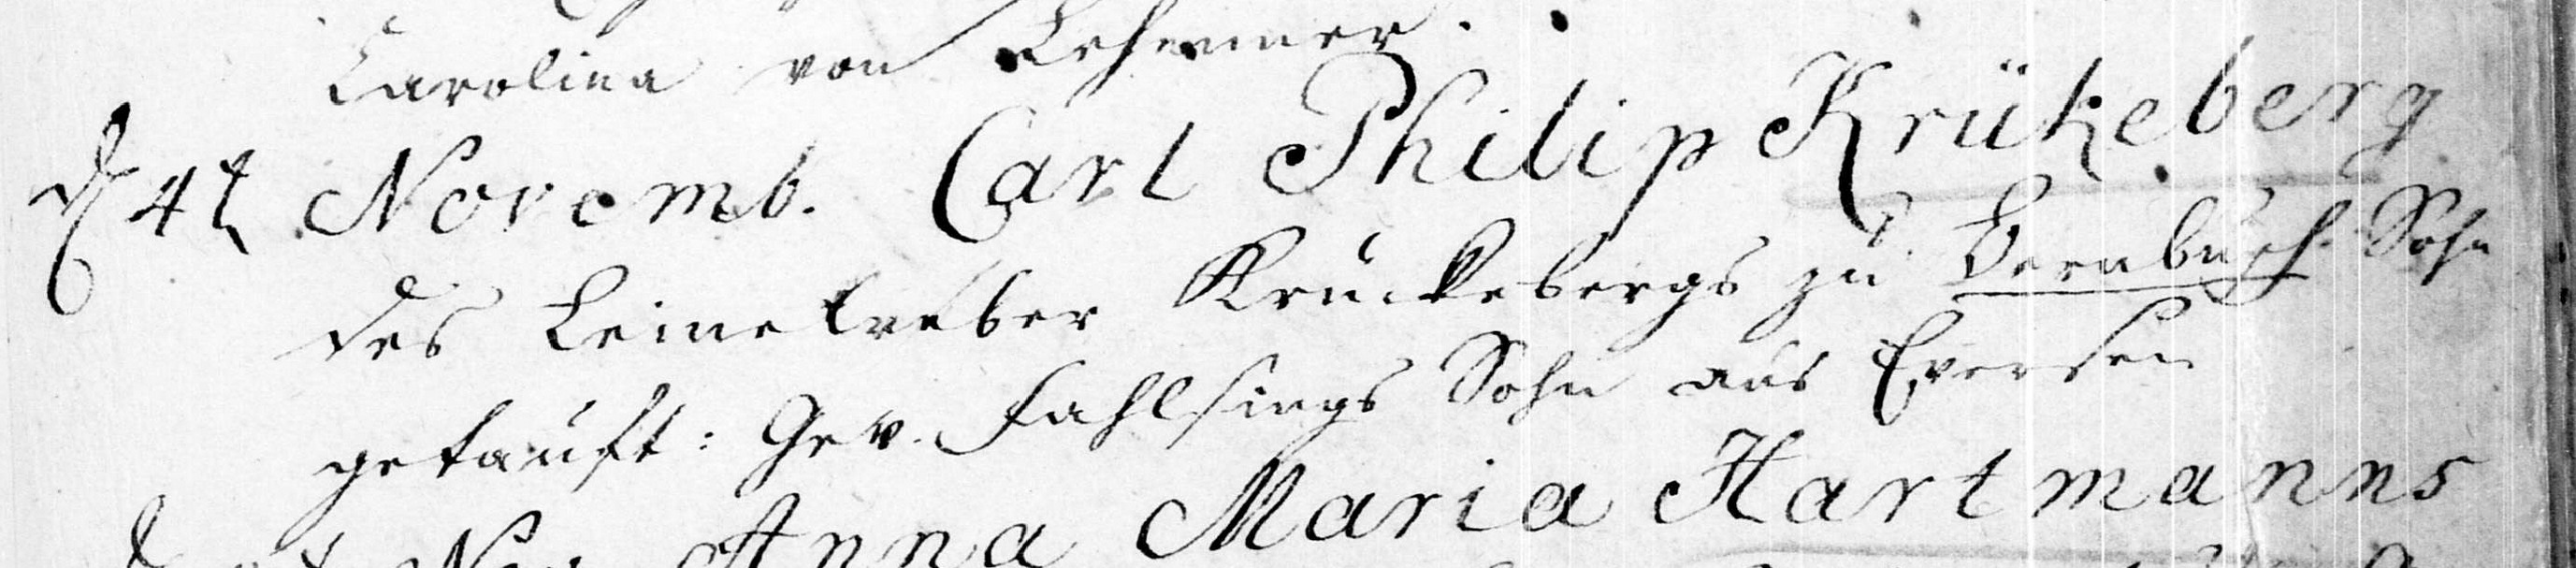 Carolina von Lehenner.
d 4t Novemb. Carl Philip Krükeberg
des Leinetreber Kruckebergs zu Bernbusch Sohn
getauft: Gev. Fahlsings Sohn aus Eversen
Nov. Anna Maria Hartmanns